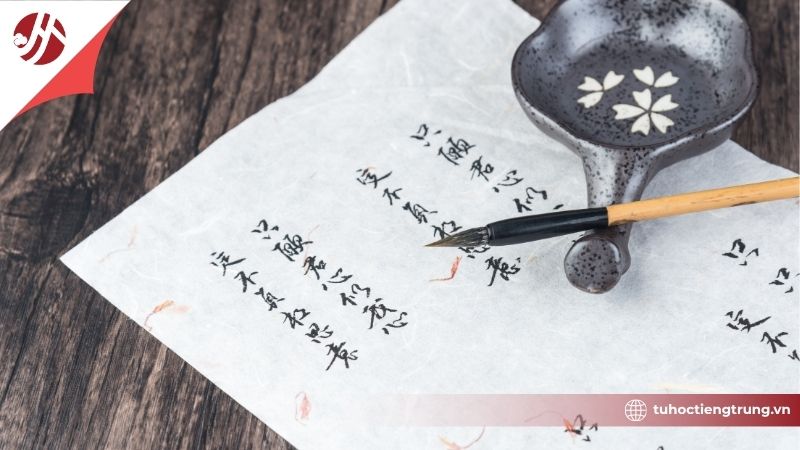 只
定不
只願君心似
定不負相思意
只願君心似我心
定不負相思意
tuhoctiengtrung.vn